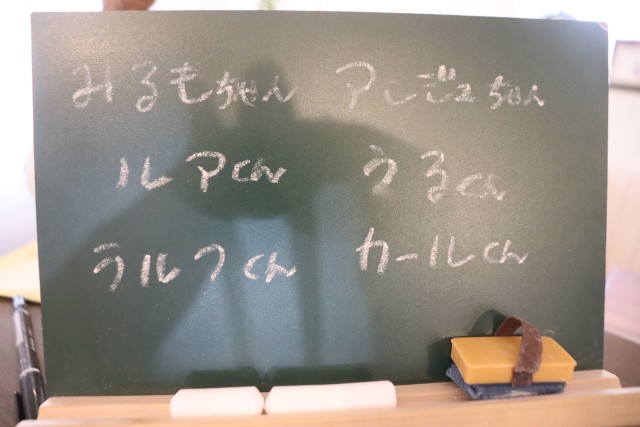 みるもちゃん アンジュちゃん
ルアくん うるくん
ラルフくん カールくん